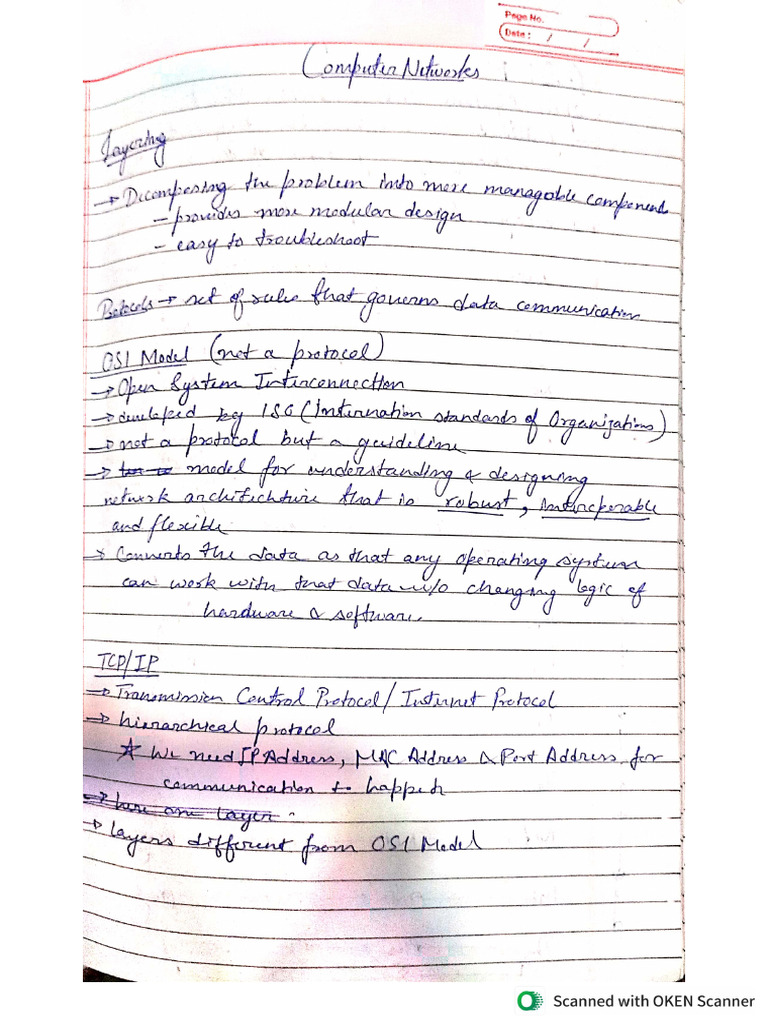 Page No.
Date : / /
Computer Networks
Layering
→ Decomposing the problem into more managable components
- provides more modular design
- easy to troubleshoot
Protocols → set of rules that governs data communication
OSI Model (not a protocol)
→ Open System Interconnection
→ developed by ISO (Internation standards of Organizations)
→ not a protocol but a guideline
→ model for understanding & designing
network architechture that is robust, interoperable
and flexible
→ Converts the data as that any operating system
can work with that data w/o changing logic of
hardware & software.
TCP/IP
→ Transmission Control Protocol/ Internet Protocol
→ hierarchical protocol
★ We need IP Address, MAC Address & Port Address for
communication to happen
→ have one layer
→ layers different from OSI Model
Scanned with OKEN Scanner